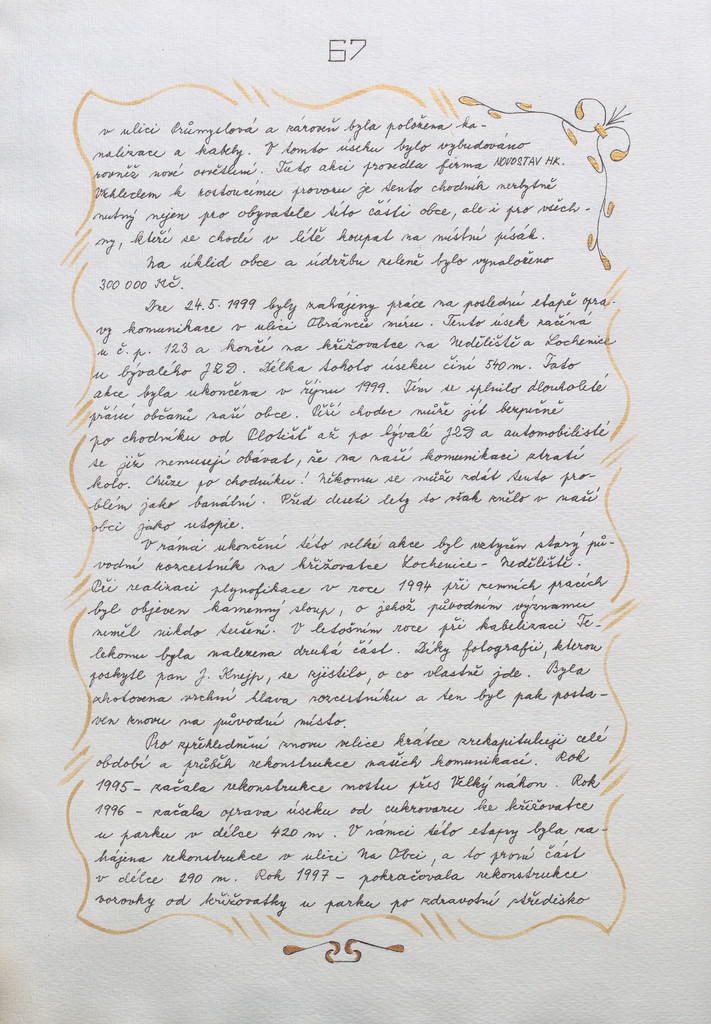 67
v ulici Průmyslová a zároveň byla položena ka-
nalizace a kabely. V tomto úseku bylo vybudováno
rovněž nové osvětlení. Tuto akci provedla firma NOVOSTAV HK.
Vzhledem k rostoucímu provozu je tento chodník nezbytně
nutný nejen pro obyvatele této části obce, ale i pro všech-
ny, kteří se chodí v létě koupat na místní písák.
Na úklid obce a údržbu zeleně bylo vynaloženo
300 000 Kč.
Dne 24.5.1999 byly zahájeny práce na poslední etapě opra-
vy komunikace v ulici Obránců míru. Tento úsek začíná
u č. p. 123 a končí na křižovatce na Neděliště a Lochenice
u bývalého JZD. Délka tohoto úseku činí 540 m. Tato
akce byla ukončena v říjnu 1999. Tím se splnilo dlouholeté
přání občanů naší obce. Pěší chodec může jít bezpečně
po chodníku od Plotišť až po bývalé JZD a automobilisté
se již nemusejí obávat, že na naší komunikaci ztratí
kolo. Chůze po chodníku! Někomu se může zdát tento pro-
blém jako banální. Před deseti lety to však znělo v naší
obci jako utopie.
V rámci ukončení této velké akce byl vztyčen starý pů-
vodní rozcestník na křižovatce Lochenice - Neděliště.
Při realizaci plynofikace v roce 1994 při zemních pracích
byl objeven kamenný sloup, o jehož původním významu
neměl nikdo tušení. V letošním roce při kabelizaci Te-
lekomu byla nalezena druhá část. Díky fotografii, kterou
poskytl pan J. Knejp, se zjistilo, o co vlastně jde. Byla
zhotovena vrchní hlava rozcestníku a ten byl pak posta-
ven znovu na původní místo.
Pro zpřehlednění znovu velice krátce zrekapituluji celé
období a průběh rekonstrukce našich komunikací. Rok
1995 - začala rekonstrukce mostu přes Velký náhon. Rok
1996 - začala oprava úseku od cukrovaru ke křižovatce
u parku v délce 420 m. V rámci této etapy byla za-
hájena rekonstrukce v ulici Na Obci, a to první část
v délce 290 m. Rok 1997 - pokračovala rekonstrukce
vozovky od křižovatky u parku po zdravotní středisko